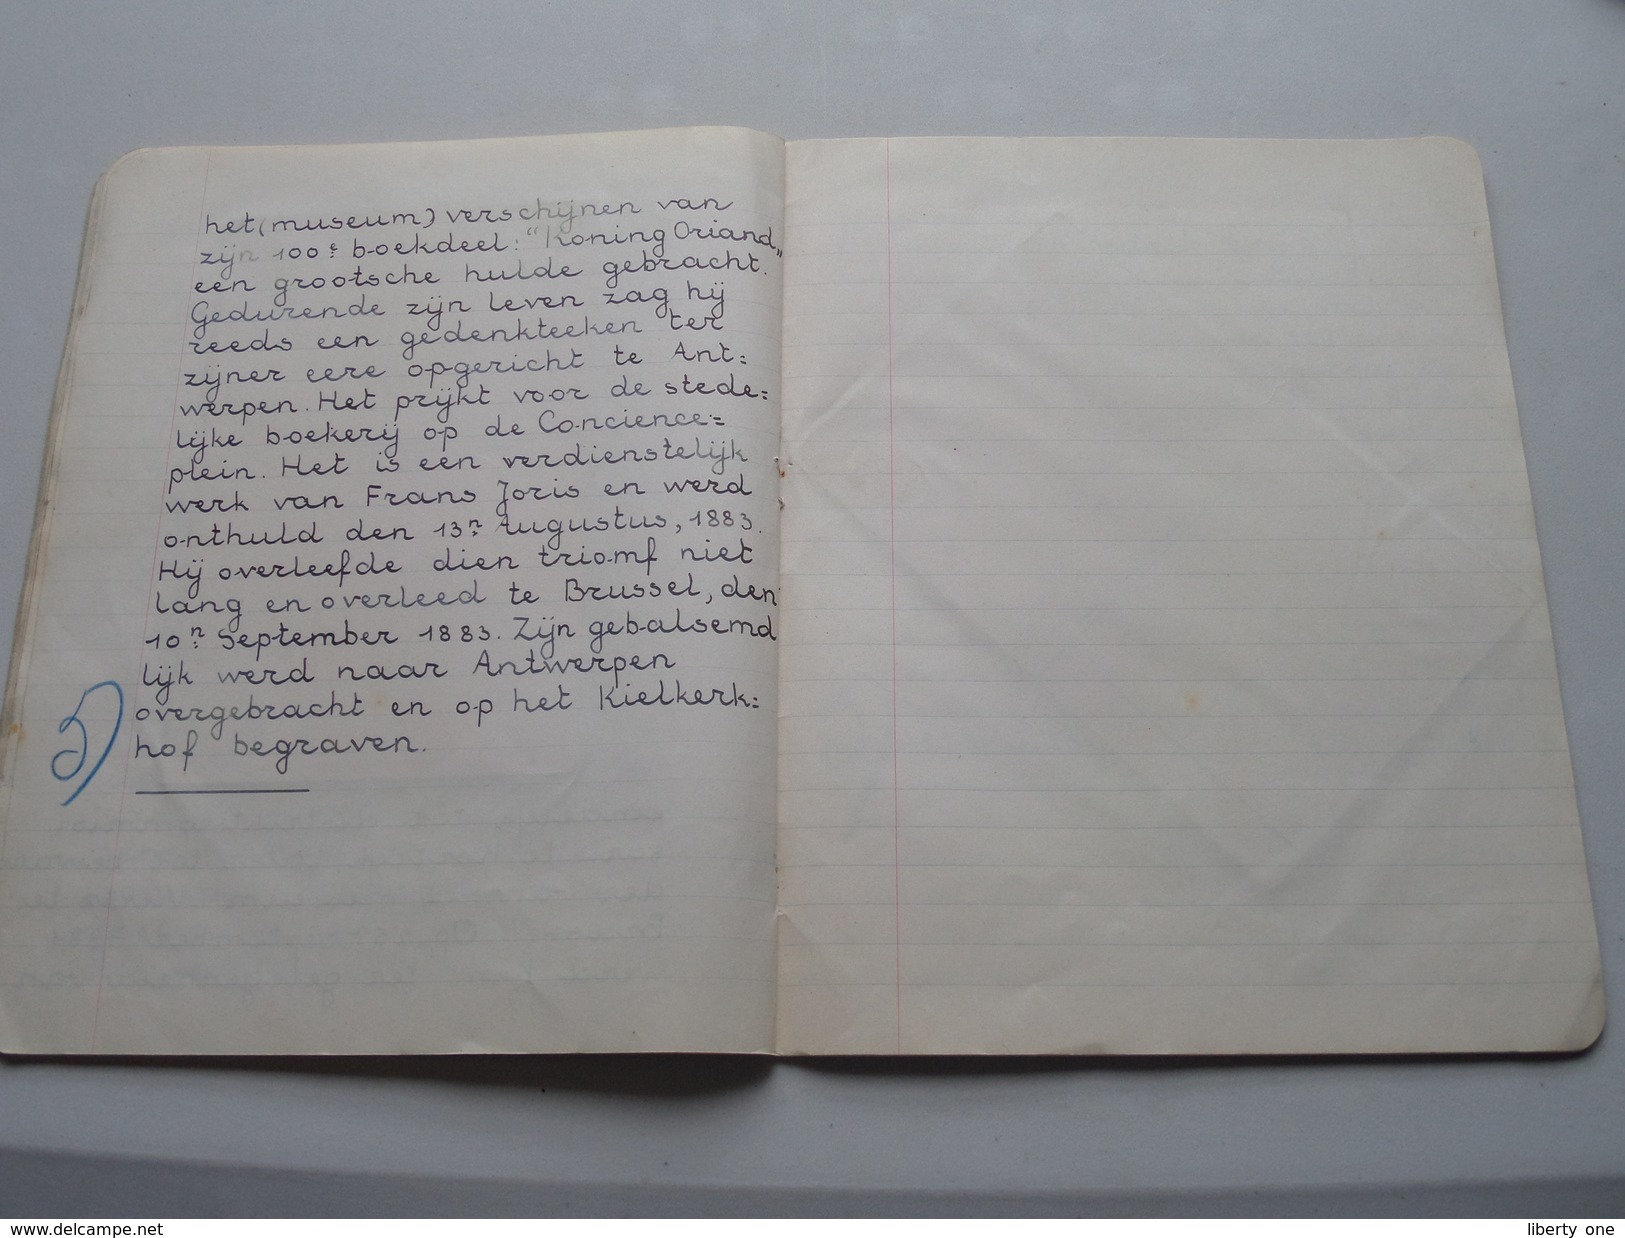 het (museum) verschijnen van
zijn 100e boekdeel: "Koning Oriand"
een grootsche hulde gebracht.
Gedurende zijn leven zag hij
reeds een gedenkteeken ter
zijner eere opgericht te Ant=
werpen. Het prijkt voor de stede=
lijke boekerij op de Concience=
plein. Het is een verdienstelijk
werk van Frans Joris en werd
onthuld den 13n Augustus, 1883.
Hij overleefde dien triomf niet
lang en overleed te Brussel, den
10n September 1883. Zijn gebalsemd
lijk werd naar Antwerpen
overgebracht en op het Kielkerk=
hof begraven.
www.delcampe.net
liberty one